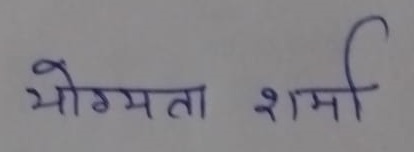 योग्यता शर्मा